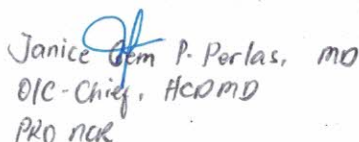 Janice Gem P. Perlas, MD
OIC-Chief, HCDMD
PRO NCR